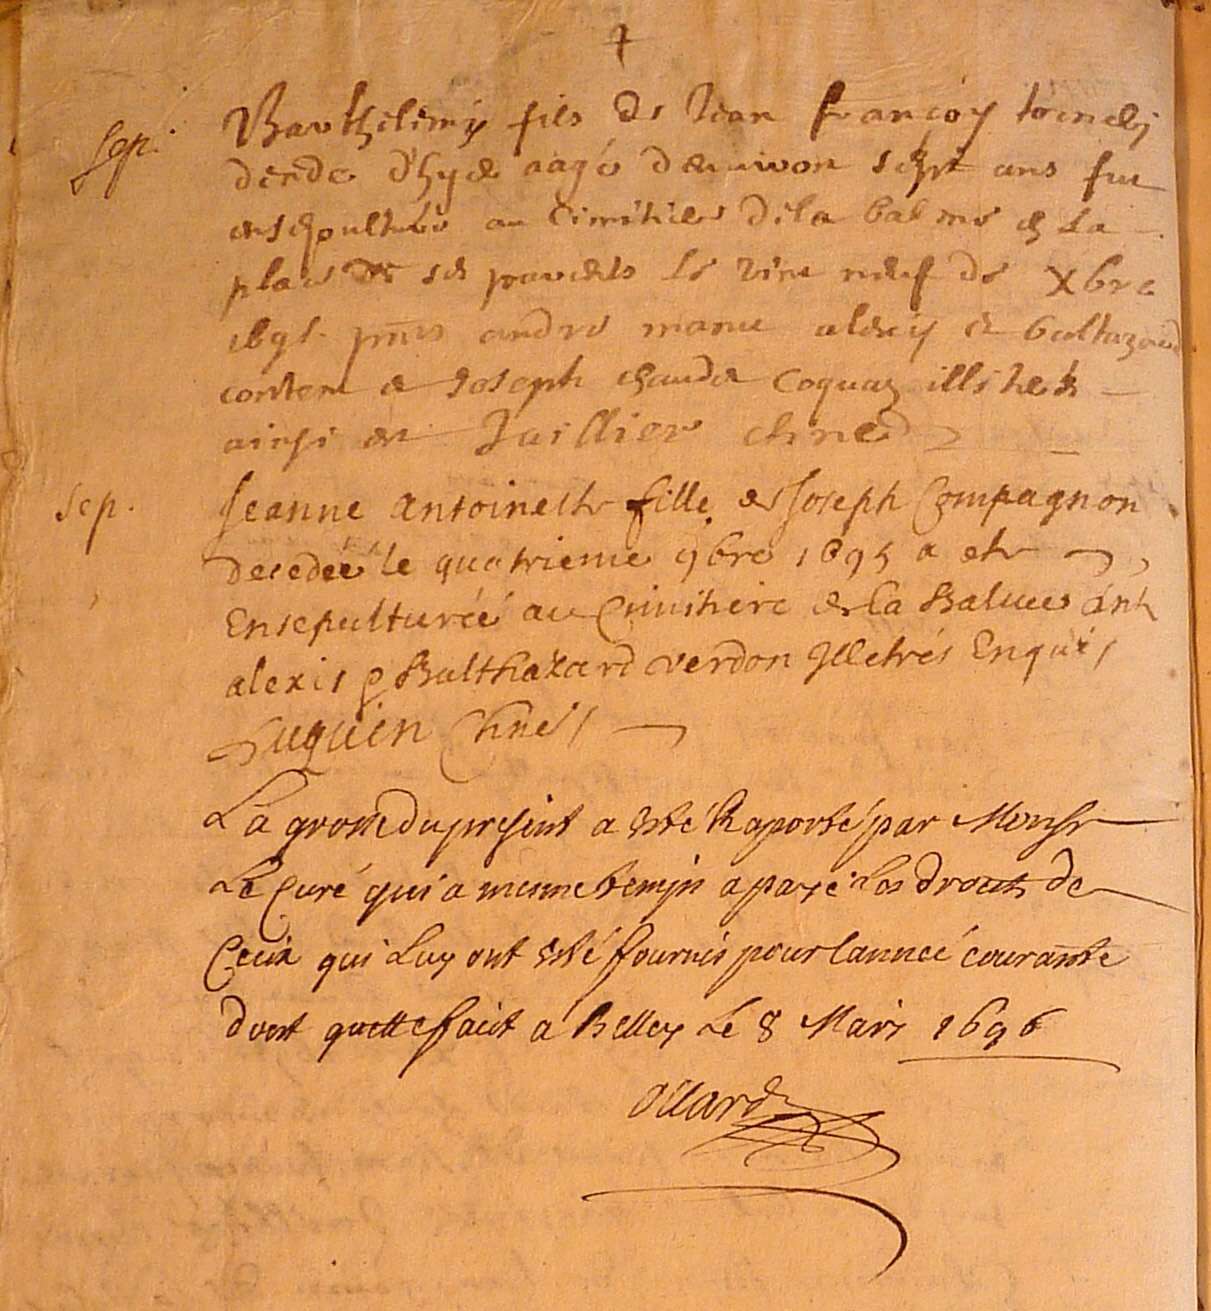 Sep.
Barthelemy fils de Jean françoy
aagé denuiron sept ans fut
ensepulturé au Cimitiere de la balme & la
place de ses parents le vint neuf de Xbre
andre alexij & baltazard
& Joseph Coquaz illitres
ainsi est Juillier
Sep.
Jeanne Antoinette fille de Joseph Compagnon
decedeé le quatrieme 9bre 1695 a ete
Ensepultureé au Cimitiere de la Balme
alexis & Balthazard verdon Illetrés Enquis
Luquin Curé
La grosse du present a esté Raporté par Monsr
Le Curé qui a mesme temps a payé Les droits de
Ceux qui Luy ont esté fournis pour lanneé courante
dont quitte faict a Belley Le 8 Mars 1696